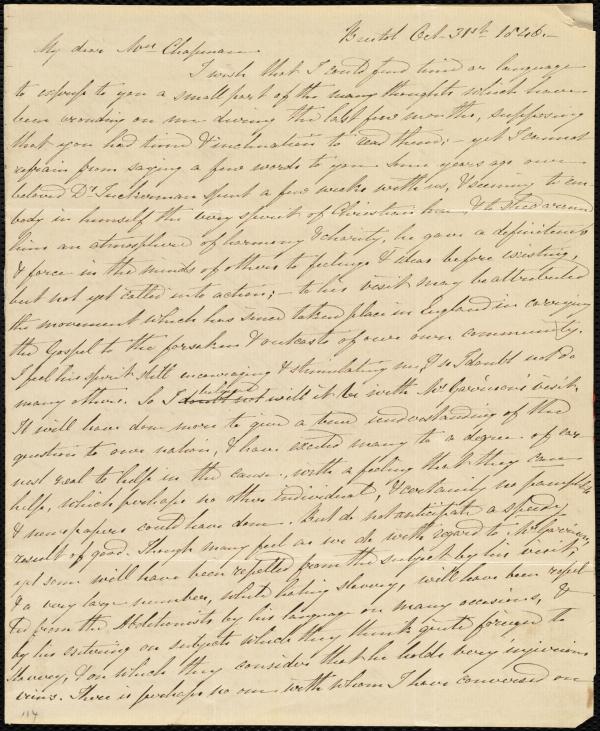 Bristol Oct 31st 1846.—
My dear Mrs Chapman
I wish that I could find time or language
to express to you a small part of the many thoughts which have
been crowding on me during the last few months, supposing
that you had time & inclination to read them; — yet I cannot
refrain from saying a few words to you. Some years ago our
beloved Dr Tuckerman spent a few weeks with us, & seeming to em-
body in himself the very spirit of Christian love, & to shed around
him an atmosphere of harmony & charity, he gave a definiteness
& force in the minds of others to feelings & ideas before existing,
but not yet called into action; — to his visit may be attributed
the movement which has since taken place in England in carrying
the Gospel to the forsaken & outcasts of our own community.
I feel his spirit still encouraging & stimulating me, & so I doubt not do
many others. So I doubt not believe will it be with Mr Garrison's visit.
It will have done more to give a true understanding of the
question to our nation, & have excited many to a degree of ear
nest zeal to help in the cause, with a feeling that they can
help, which perhaps no other individual, & certainly no pamphlets
& newspapers could have done. But do not anticipate a speedy
result of good. Though many feel as we do with regard to Mr Garrison,
yet some will have been repelled from the subject by his visit
& a very large number, while hating slavery, will have been repel
led from the Abolitionists by his language on many occasions, &
by his entering on subjects which they think quite foreign to
slavery, & on which they consider that he holds very injurious
views. There is perhaps no one with whom I have conversed on